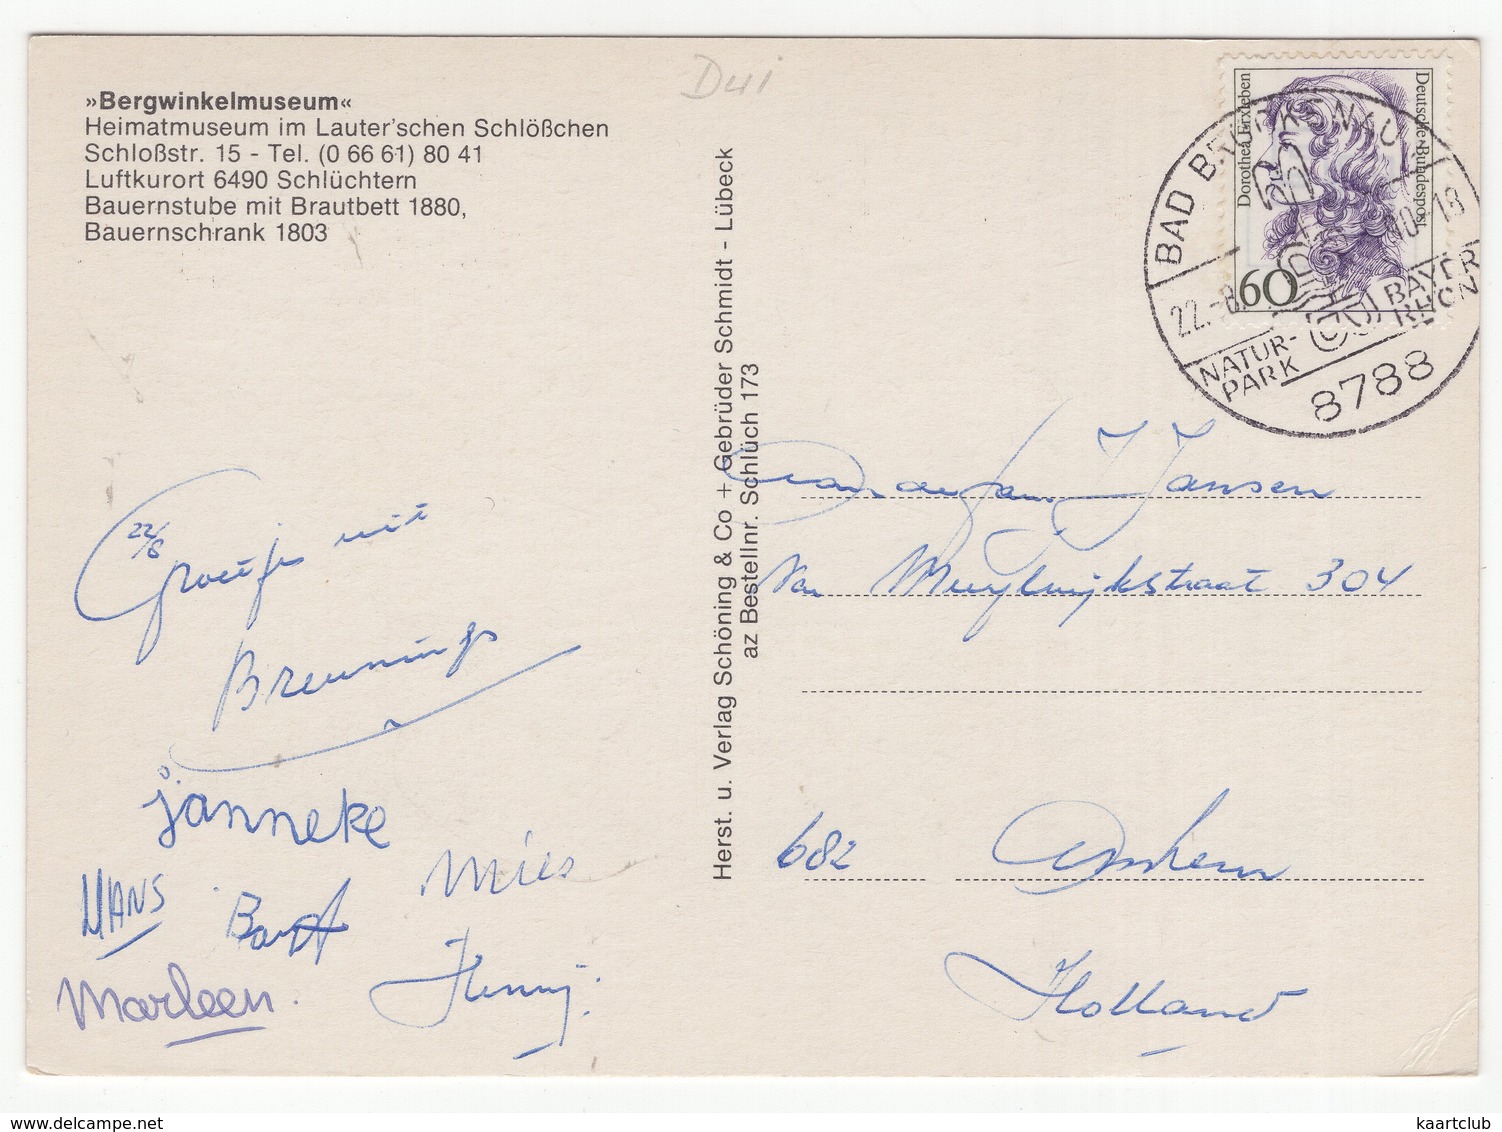 Dui
»Bergwinkelmuseum«
Heimatmuseum im Lauter'schen Schlößchen
Schloßstr. 15 - Tel. (0 66 61) 80 41
Luftkurort 6490 Schlüchtern
Bauernstube mit Brautbett 1880,
Bauernschrank 1803
22/8
Groetjes uit
Brennings
Janneke
HANS
Bart
Mies
Marleen.
Henny.
Herst. u. Verlag Schöning & Co + Gebrüder Schmidt - Lübeck
az Bestellnr. Schlüch 173
Dorothea Erxleben
Deutsche Bundespost
60
BAD BRÜCKENAU
22.-8
-18
NATUR-
PARK
BAYER
RHÖN
8788
fam. J Jansen
Van Muylwijkstraat 304
682 Arnhem
Holland
kaartclub